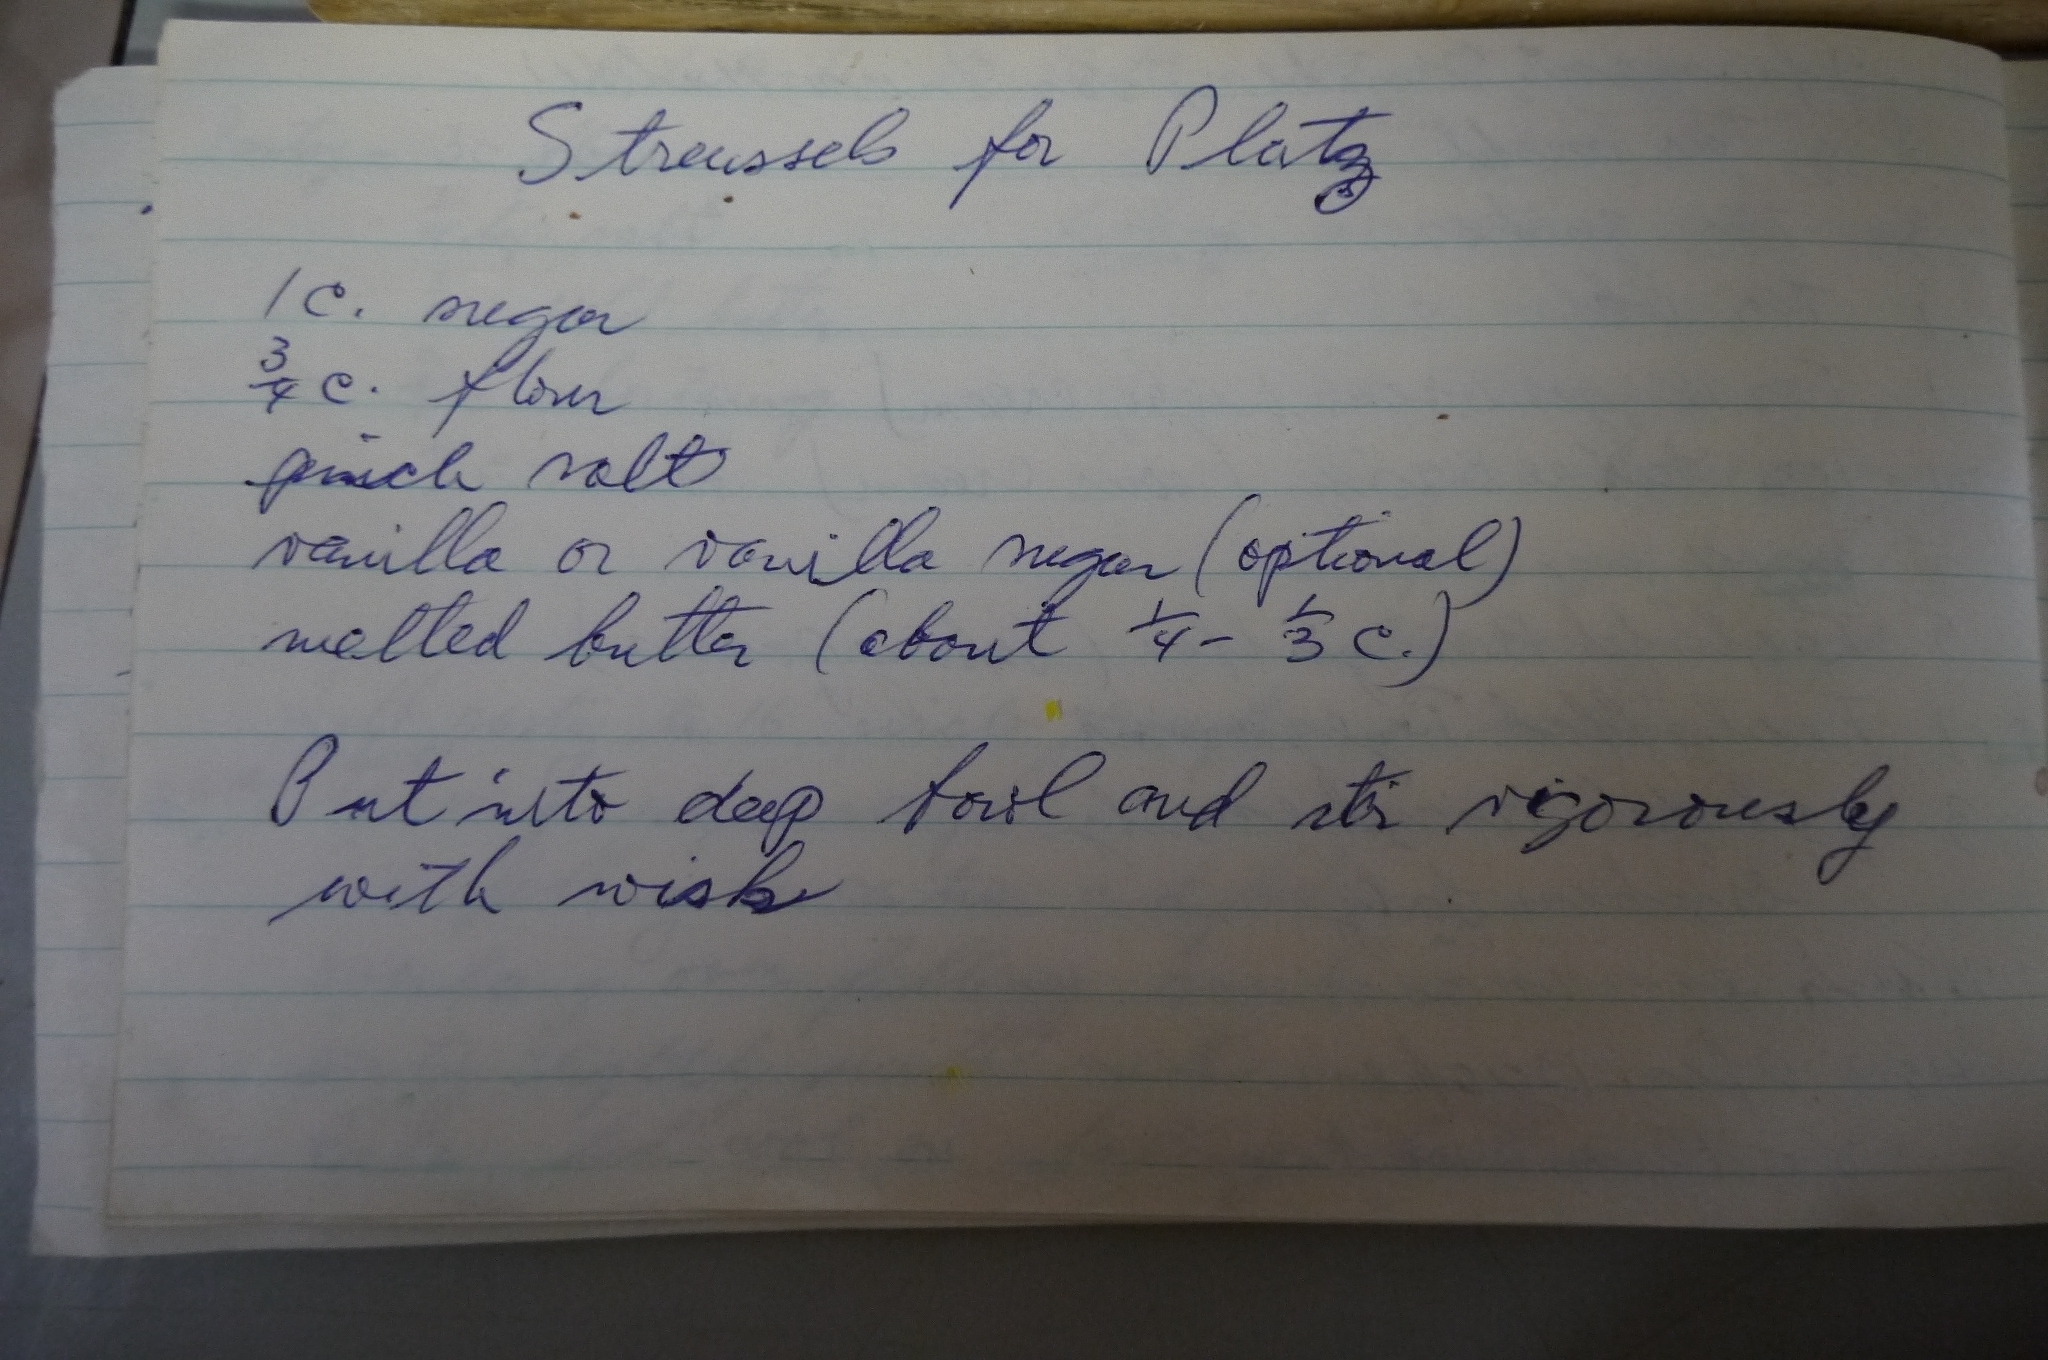 Streussels for Platz
1 c. sugar
3/4 c. flour
pinch salt
vanilla or vanilla sugar (optional)
melted butter (about 1/4 - 1/3 c.)
Put into deep bowl and stir vigorously
with wisk